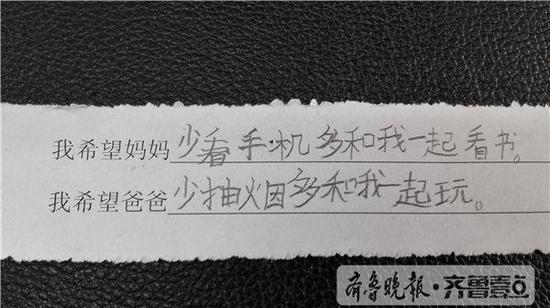 我希望妈妈少看手机多和我一起看书。
我希望爸爸少抽烟多和我一起玩。
齐鲁晚报·齐鲁壹点